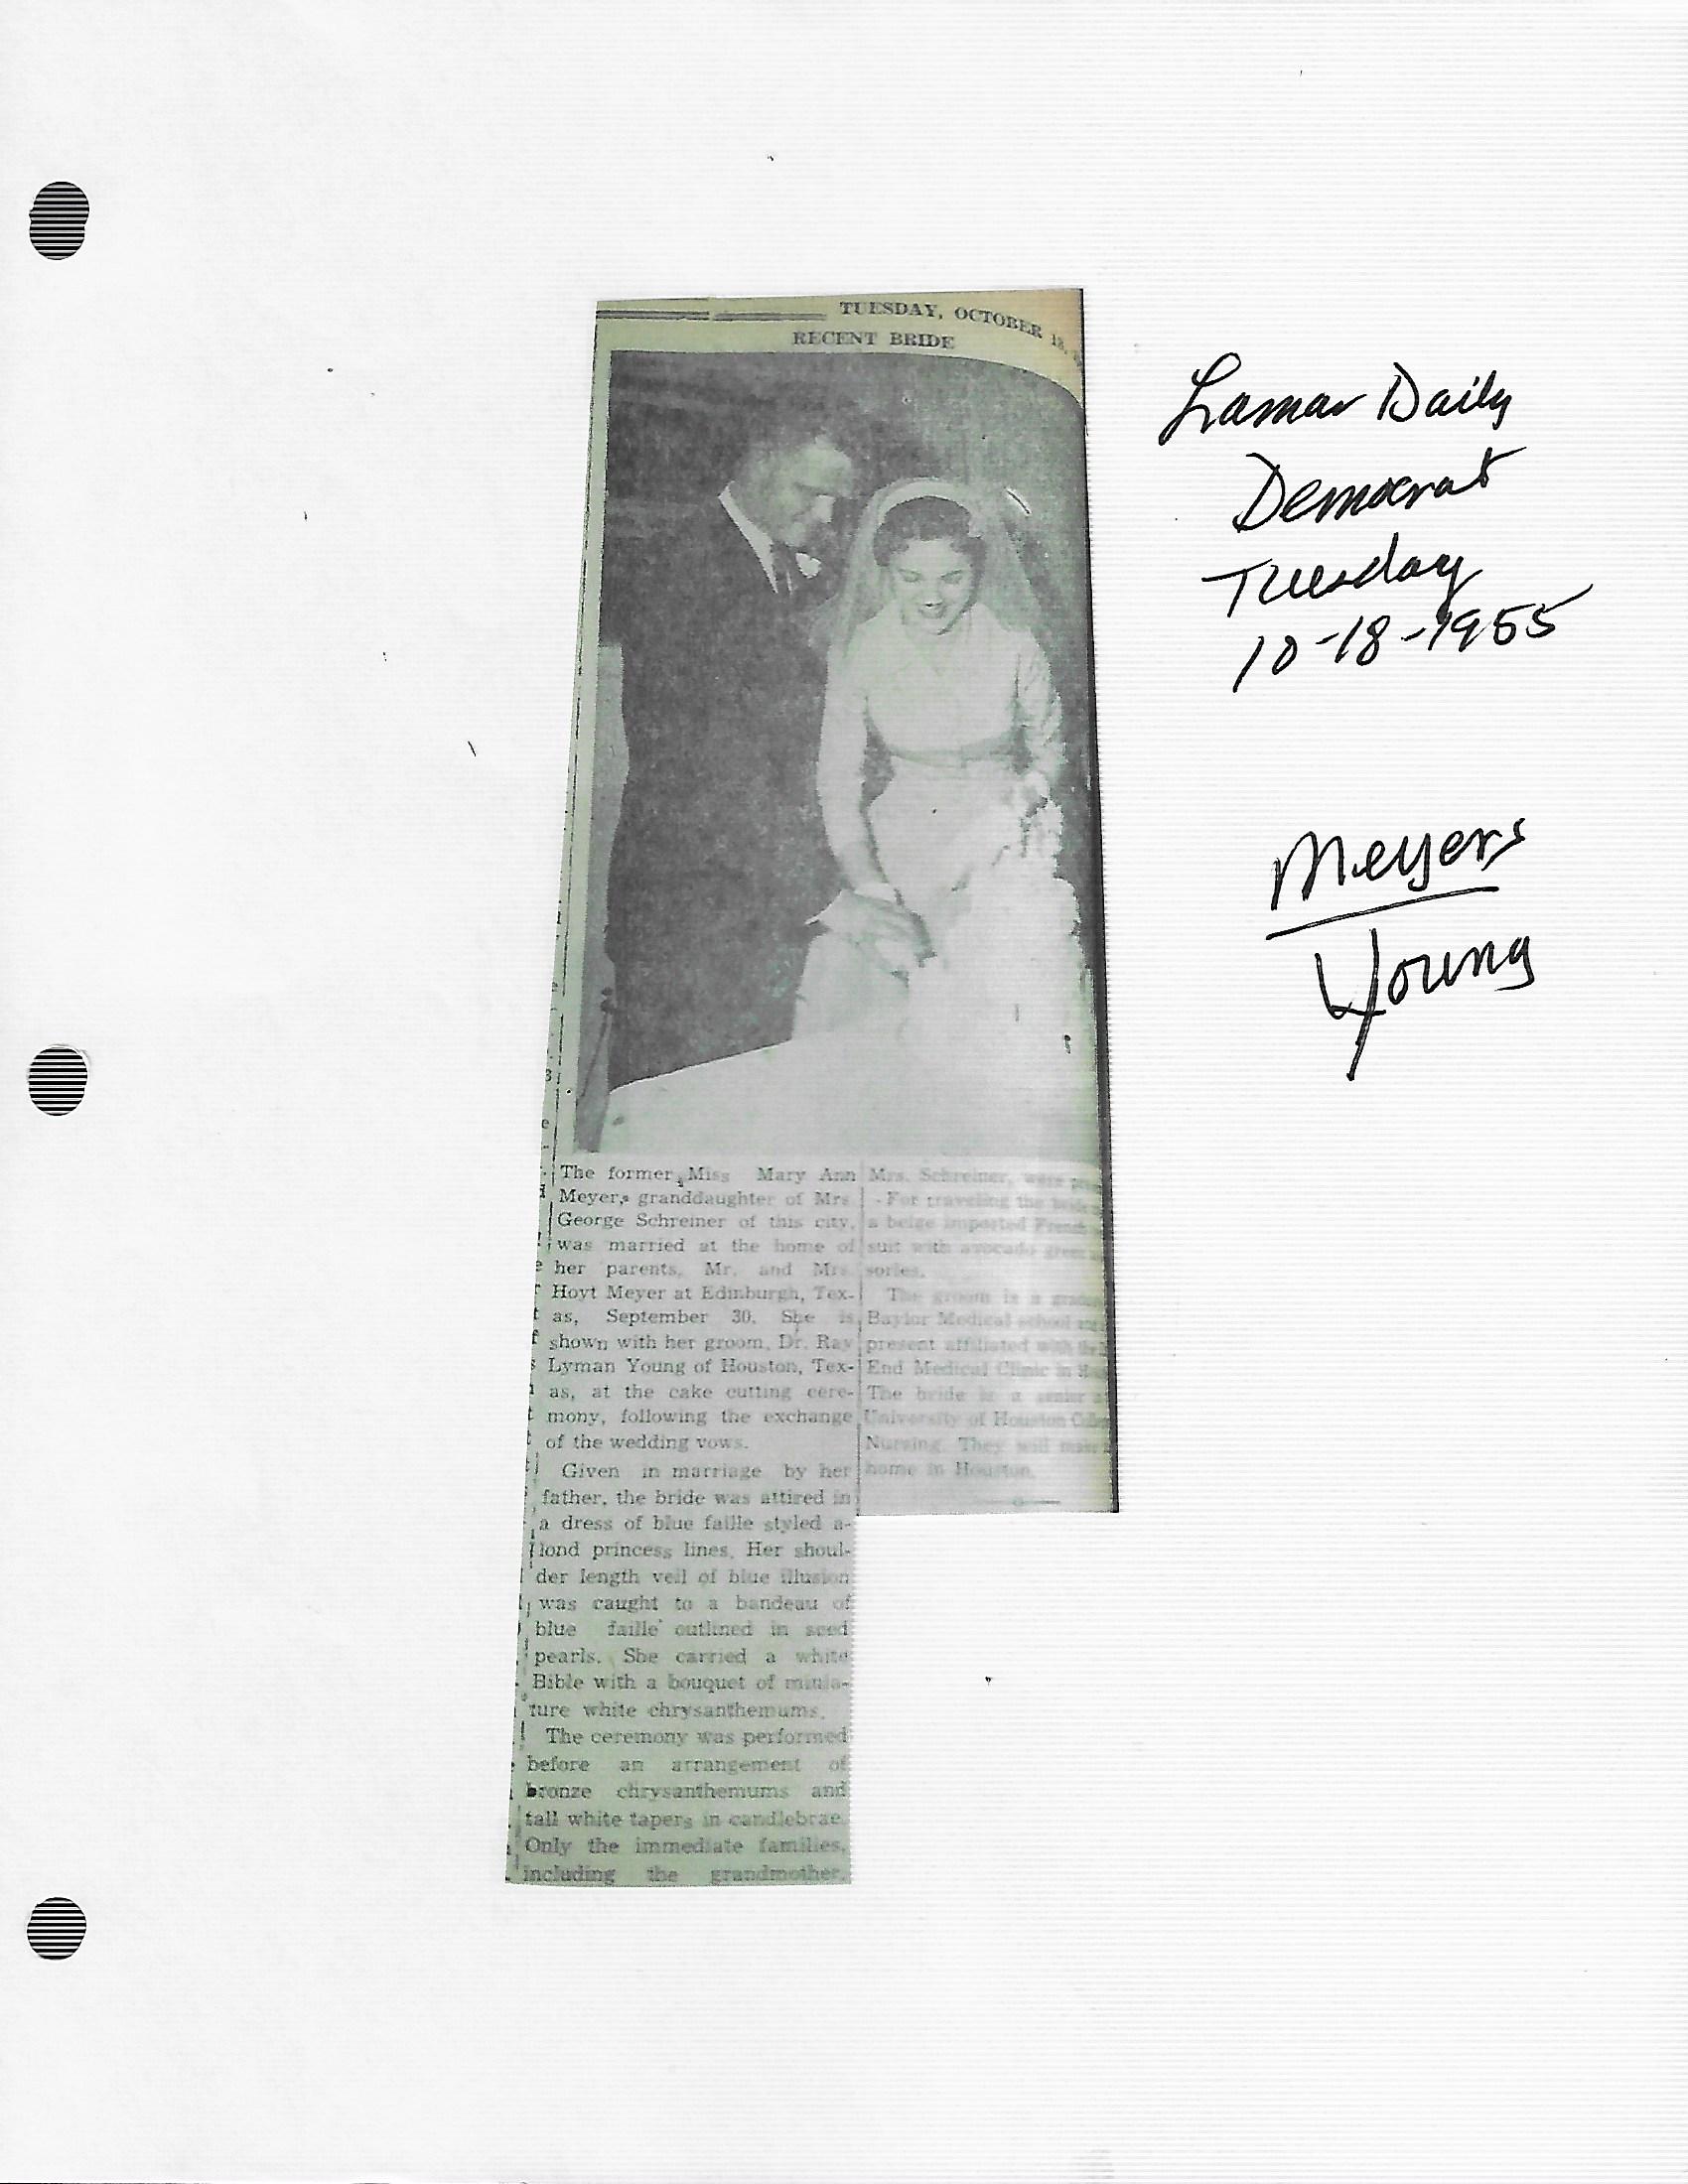 TUESDAY, OCTOBER 18,
RECENT BRIDE
The former Miss Mary Ann
Meyer, granddaughter of Mrs
George Schreiner of this city,
was married at the home of
her parents, Mr. and Mrs
Hoyt Meyer at Edinburgh, Tex-
as, September 30. She is
shown with her groom, Dr. Ray
Lyman Young of Houston, Tex-
as, at the cake cutting cere-
mony, following the exchange
of the wedding vows.
Given in marriage by her
father, the bride was attired in
a dress of blue faille styled a-
lond princess lines. Her shoul-
der length veil of blue illusion
was caught to a bandeau of
blue faille outlined in seed
pearls. She carried a white
Bible with a bouquet of minia-
ture white chrysanthemums.
The ceremony was performed
before an arrangement of
bronze chrysanthemums and
tall white tapers in candlebrae.
Only the immediate families,
including the grandmother,
Mrs. Schreiner, were
For traveling the bride
a beige imported French
suit with avocado green
sories.
The groom is a
Baylor Medical school
present affiliated with the
End Medical Clinic in
The bride is a senior
University of Houston
Nursing. They will make
home in Houston.
Lamar Daily
Democrat
Tuesday
10-18-1955
Meyers
Young